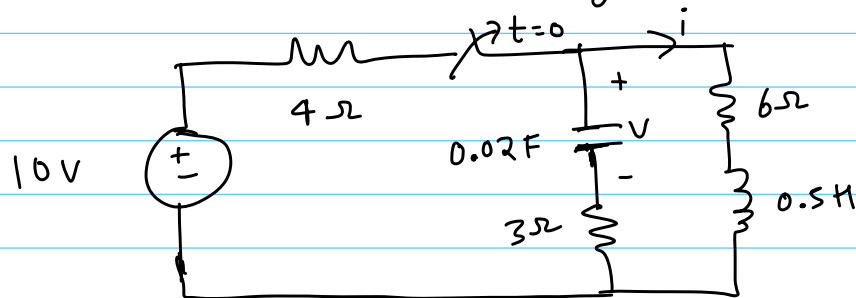 t=0
i
4 Ω
+
6Ω
10V
+
-
0.02F
V
-
0.5H
3Ω